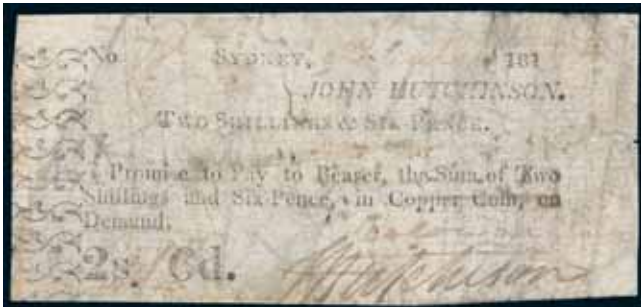 No. SYDNEY, 181
JOHN HUTCHINSON.
TWO SHILLINGS & SIX PENCE.
I Promise to Pay to Bearer, the Sum of Two
Shillings and Six-Pence, in Copper Coin, on
Demand.
2s. 6d. J Hutchinson